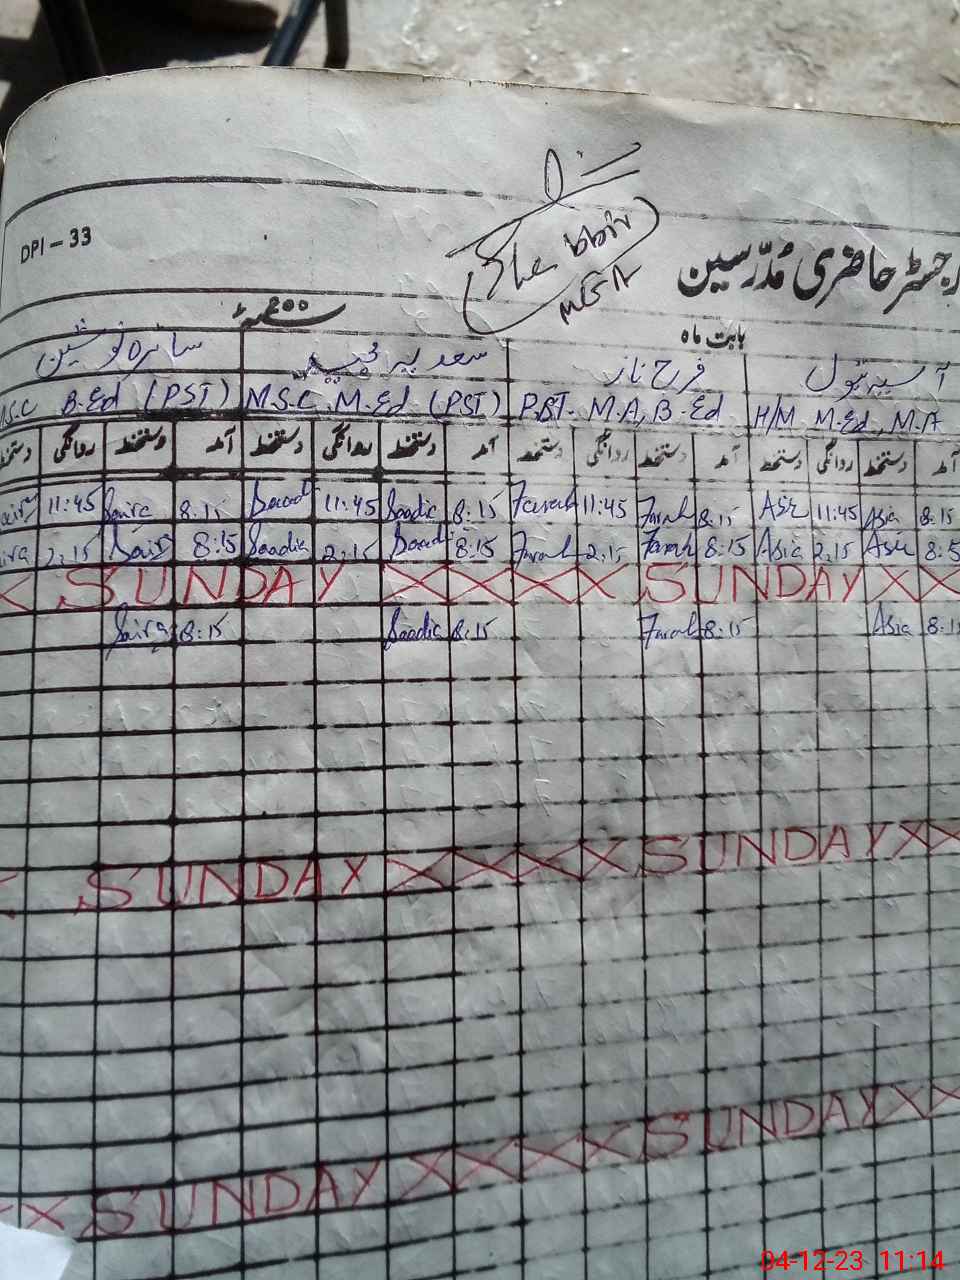 DPI-33
Shabbir
MGA
رجسٹر حاضری مدرسین
بابت ماہ
آسیہ بتول فرح ناز سعدیہ مجید سائرہ نوشین
B.Ed (PST) M.S.C M.Ed (PST) PST. M.A, B.Ed H/M M.Ed, M.A
آمد دستخط روانگی دستخط آمد دستخط روانگی دستخط آمد دستخط روانگی دستخط آمد دستخط روانگی
11:45 Saira 8:15 Saad 11:45 Saadia 8:15 Farah 11:45 Farah 8:15 Asia 11:45 Asia 8:15
2:15 Saira 8:15 Saadia 2:15 Saad 8:15 Farah 2:15 Farah 8:15 Asia 2:15 Asia 8:15
X SUNDAY X X X X SUNDAY X X
Saira 8:15 Saadia 8:15 Farah 8:15 Asia 8:15
SUNDAY X X X X SUNDAY X X
X X SUNDAY X X X X SUNDAY X X
04-12-23 11:14